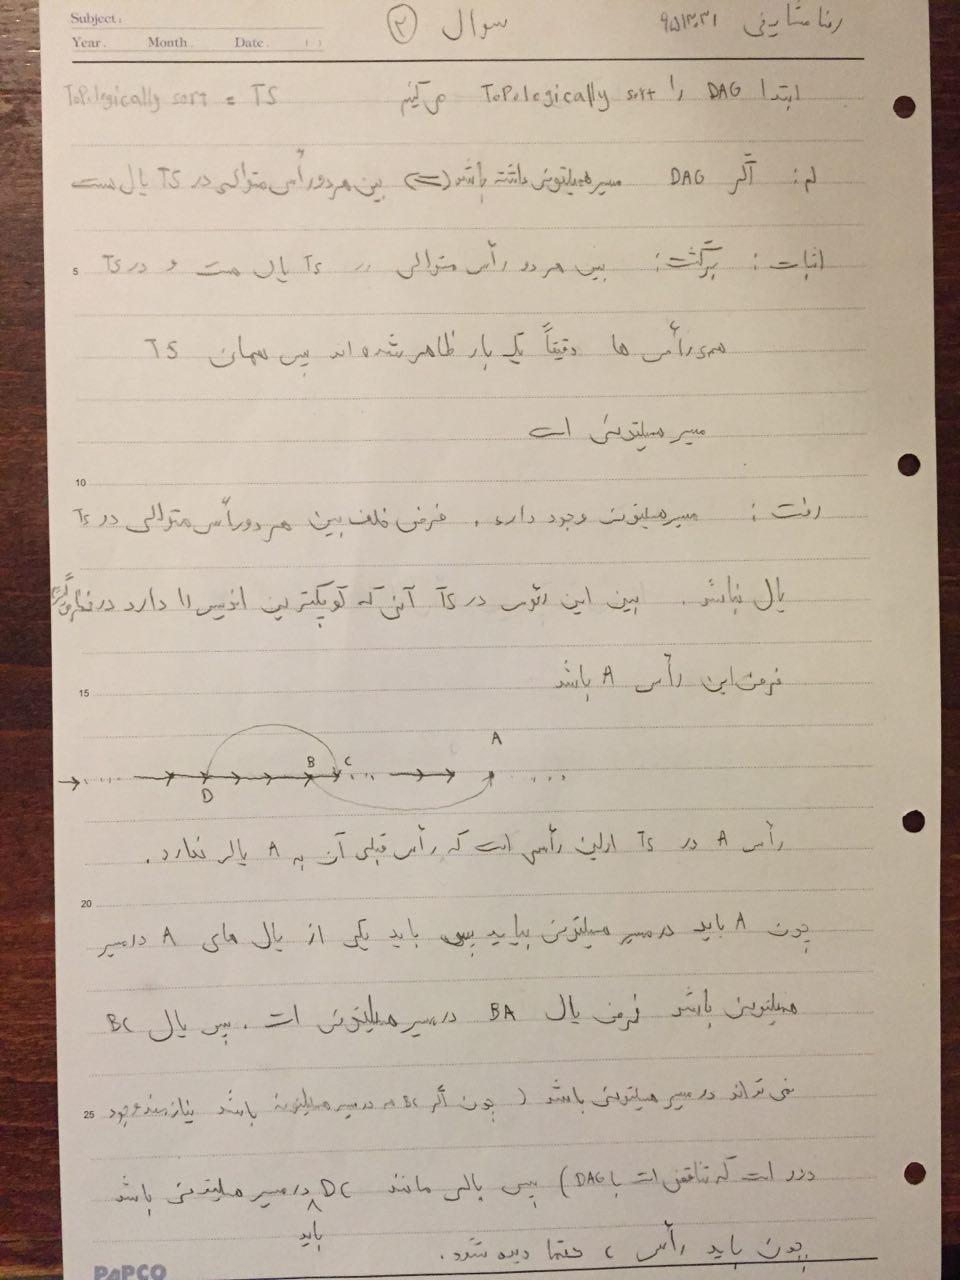 Subject:
Year. Month. Date. ( )
سوال ②
رضا مشایخی ۹۵۱۳۰۳۱
ابتدا DAG را Topologically sort می‌کنیم Topologically sort = TS
لم: اگر DAG مسیر همیلتونی داشته باشد (⇔) بین هر دو رأس متوالی در TS یال هست
5
اثبات: برگشت: بین هر دو رأس متوالی در TS یال هست و در TS
همه‌ی رأس ها دقیقاً یک بار ظاهر شده اند پس همان TS
مسیر همیلتونی است
10
رفت: مسیر همیلتونی وجود دارد. فرض خلف بین هر دو رأس متوالی در TS
یال نباشد. بین این رئوس در TS آنی که کوچکترین اندیس را دارد در نظر
15
فرض این رأس A باشد
A
B C
D
رأس A در TS اولین رأسی است که رأس قبلی آن به A یالی ندارد.
20
چون A باید در مسیر همیلتونی بیاید پس باید یکی از یال های A در مسیر
همیلتونی باشد فرض یال BA در مسیر همیلتونی است. پس یال BC
25
نمی تواند در مسیر همیلتونی باشد (چون اگر BC در مسیر همیلتونی باشد نیازمند وجود
دور است که تناقض است با DAG) پس یالی مانند DC باید در مسیر همیلتونی باشد
چون باید رأس C حتما دیده شود.
PAPCO